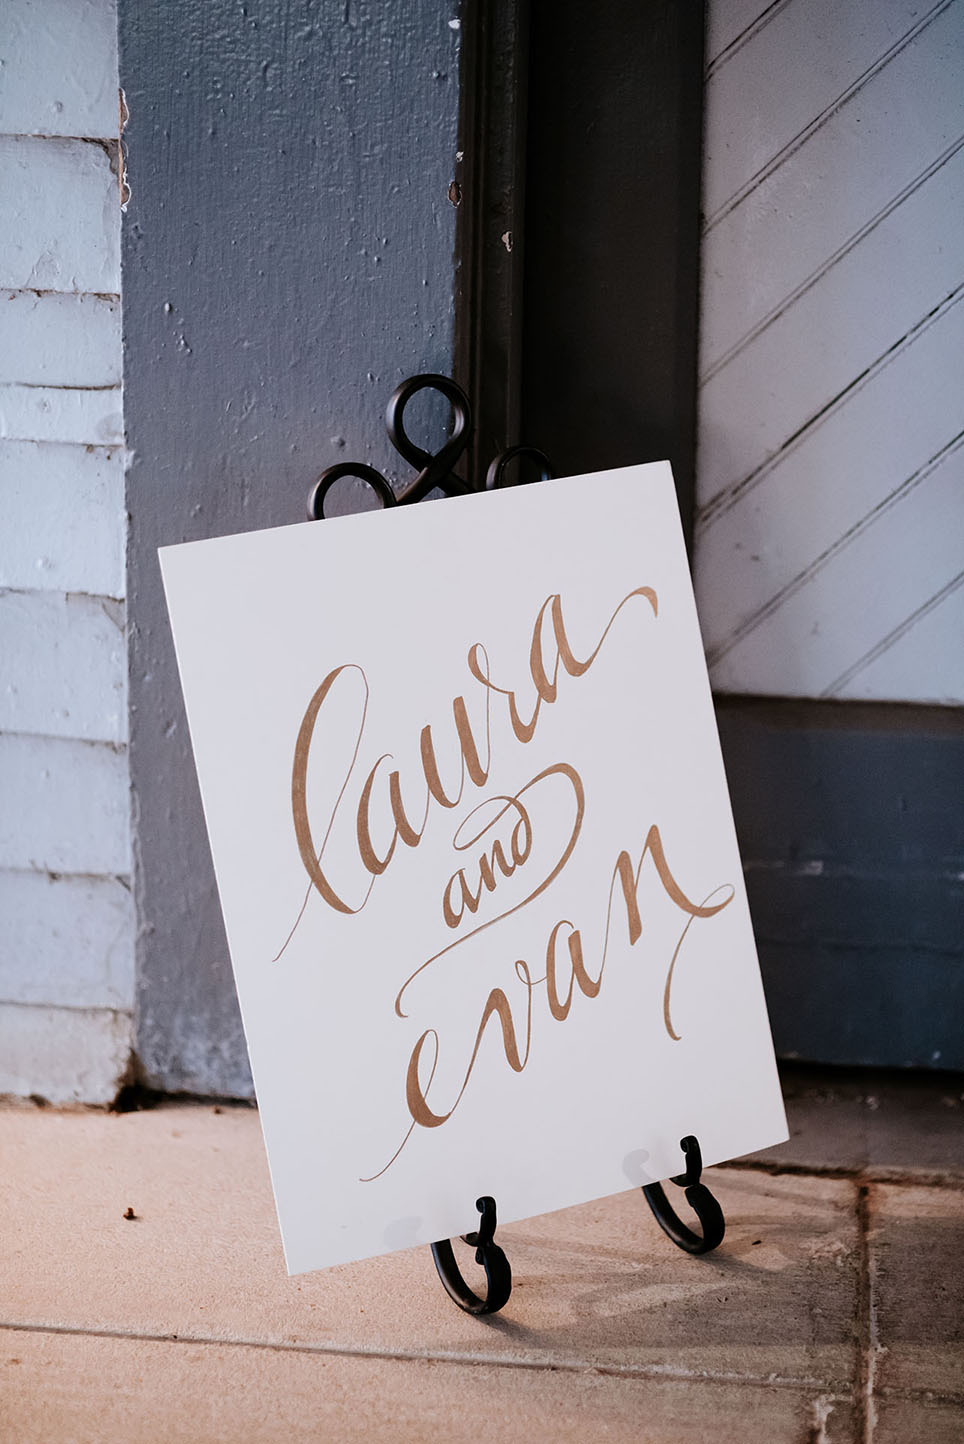 laura
and
evan